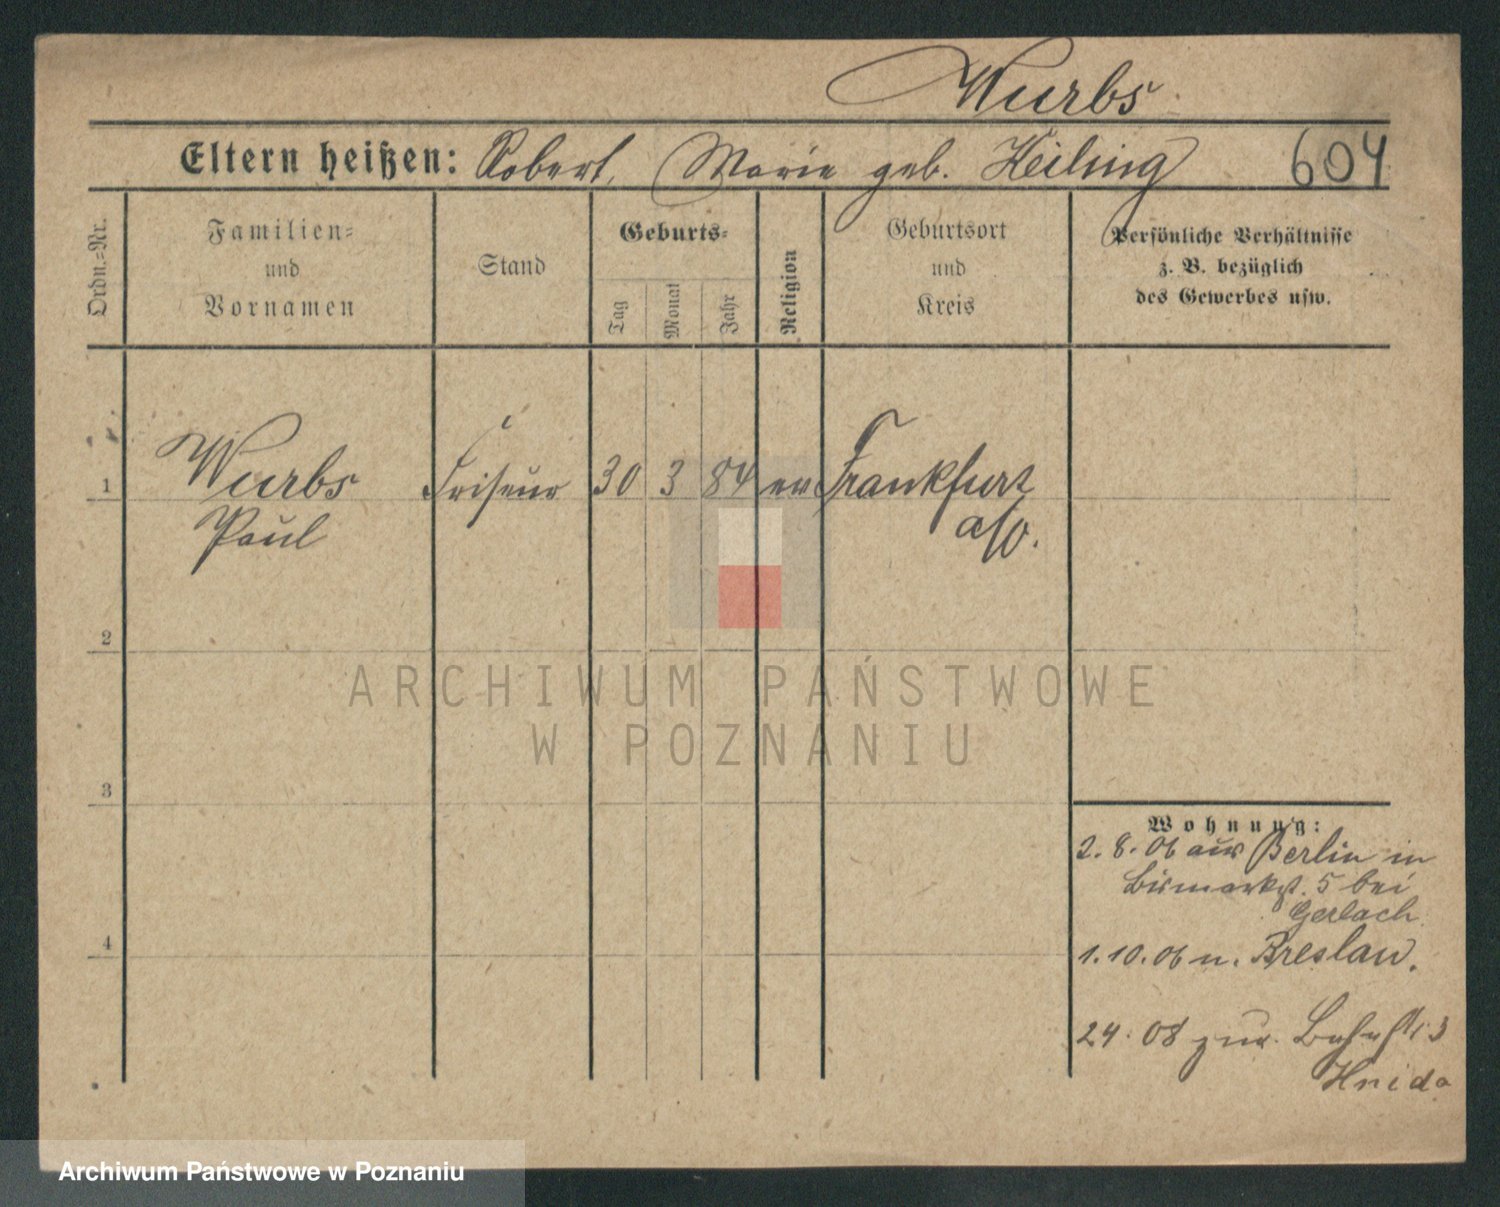 Wurbs
Eltern heißen: Robert, Marie geb. Heiling 604
Ordn.-Nr.
Familien-
und
Vornamen
Stand
Geburts-
Tag
Monat
Jahr
Religion
Geburtsort
und
Kreis
Persönliche Verhältnisse
z. B. bezüglich
des Gewerbes usw.
1 Wurbs Friseur 30 3 84 ev Frankfurt
Paul a/O.
2
3
4
Wohnung:
2.8.06 aus Berlin in
Bismarckst. 5 bei
Gerlach
1.10.06 n. Breslau.
24. 08 zur.
Hnida
ARCHIWUM PAŃSTWOWE
W POZNANIU
Archiwum Państwowe w Poznaniu